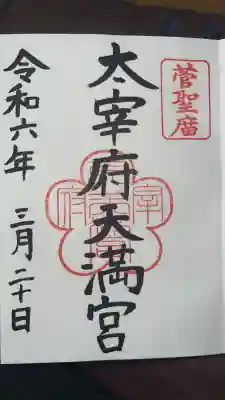 菅聖庿
太宰府天満宮
令和六年 三月二十日